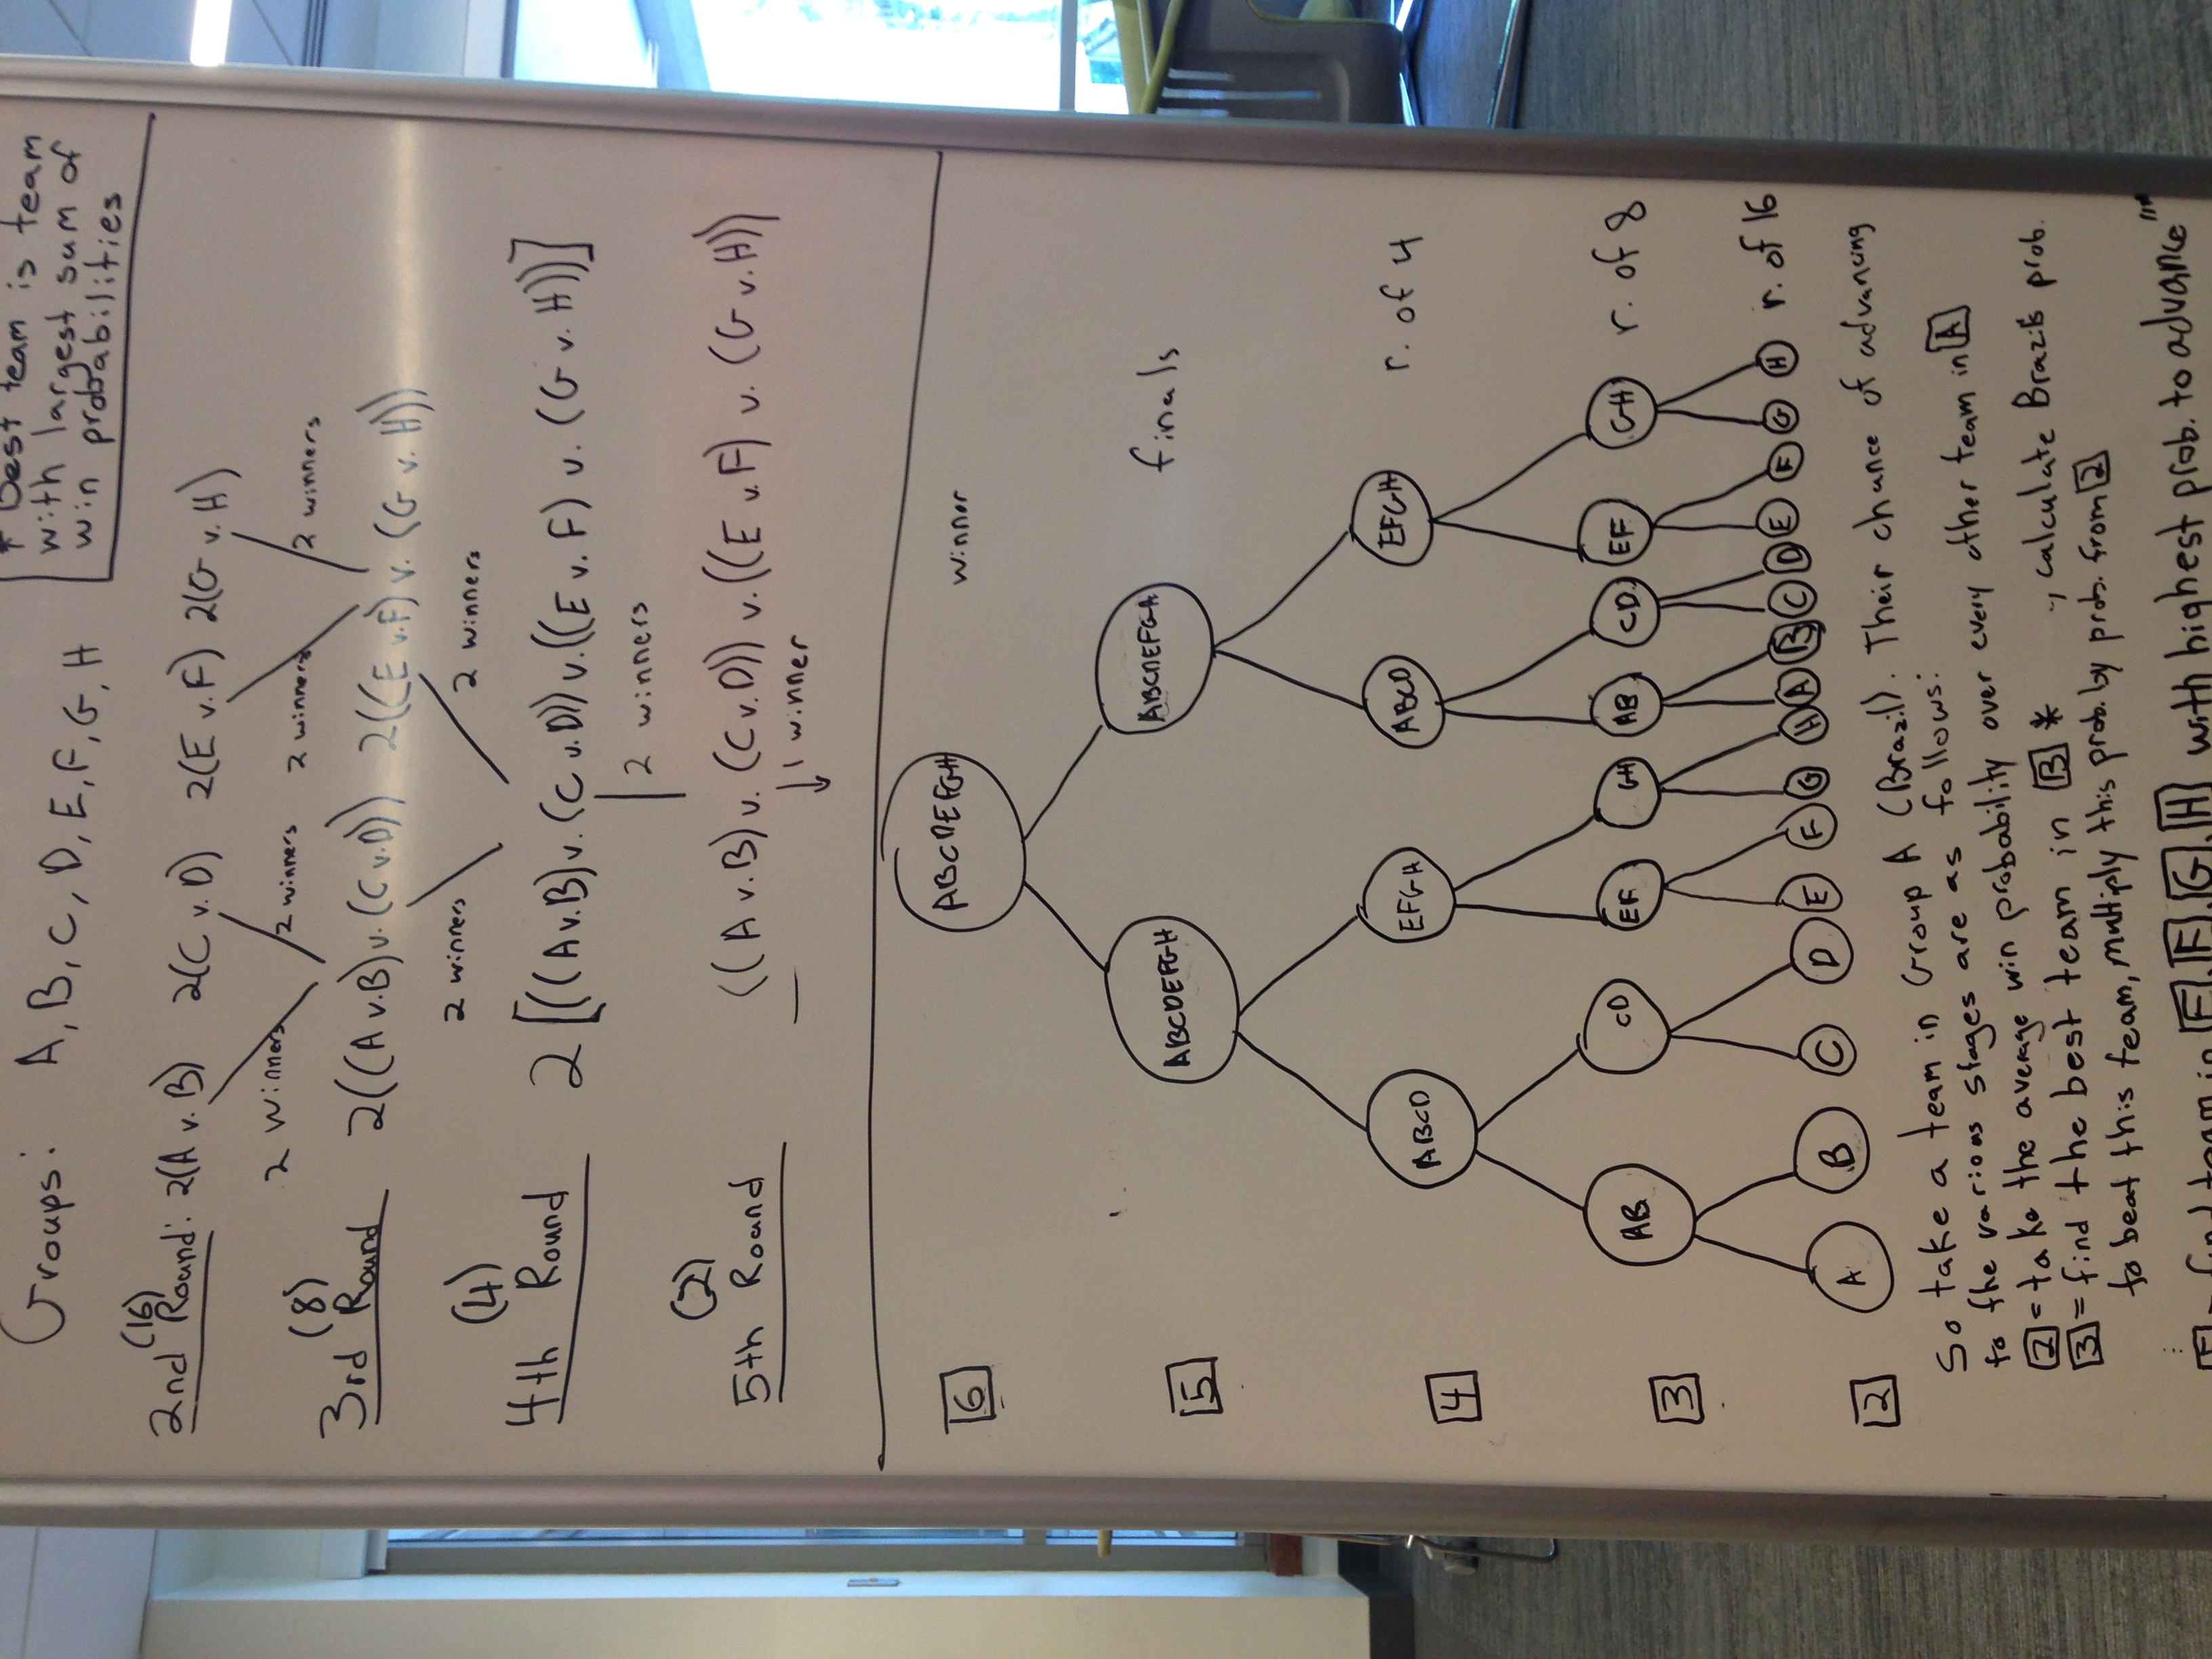 Groups: A, B, C, D, E, F, G, H
* Best team is team
with largest sum of
win probabilities
(16)
2nd Round: 2(A v. B) 2(C v. D) 2(E v. F) 2(G v. H)
2 winners 2 winners 2 winners 2 winners
(8)
3rd Round 2((A v. B) v. (C v. D)) 2((E v. F) v. (G v. H))
2 winners 2 winners
(4)
4th Round 2[((A v. B) v. (C v. D)) v. ((E v. F) v. (G v. H))]
2 winners
(2)
5th Round ((A v. B) v. (C v. D)) v. ((E v. F) v. (G v. H))
1 winner
6 ABCDEFGH winner
5 ABCDEFGH ABCDEFGH finals
4 ABCD EFGH ABCD EFGH r. of 4
3 AB CD EF GH AB CD EF GH r. of 8
2 A B C D E F G H A B C D E F G H r. of 16
So take a team in Group A (Brazil). Their chance of advancing
to the various stages are as follows:
2 = take the average win probability over every other team in A
3 = find the best team in B * , calculate Brazil's prob.
to beat this team, multiply this prob. by prob. from 2
find team in E, F, G, H with highest prob. to advance